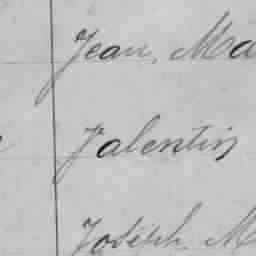 Jean, Ma
Valentin
Joseph M